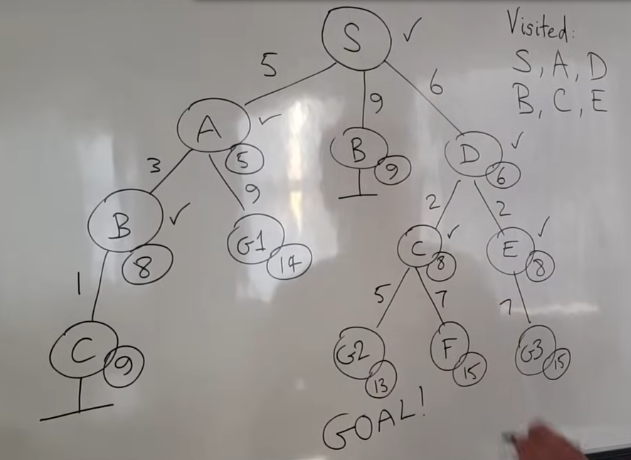 Visited:
S, A, D
B, C, E
S
5
9
6
A
5
B
9
D
6
3
9
2
2
B
8
G1
14
C
8
E
8
1
5
7
7
C
9
G2
13
F
15
G3
15
GOAL!